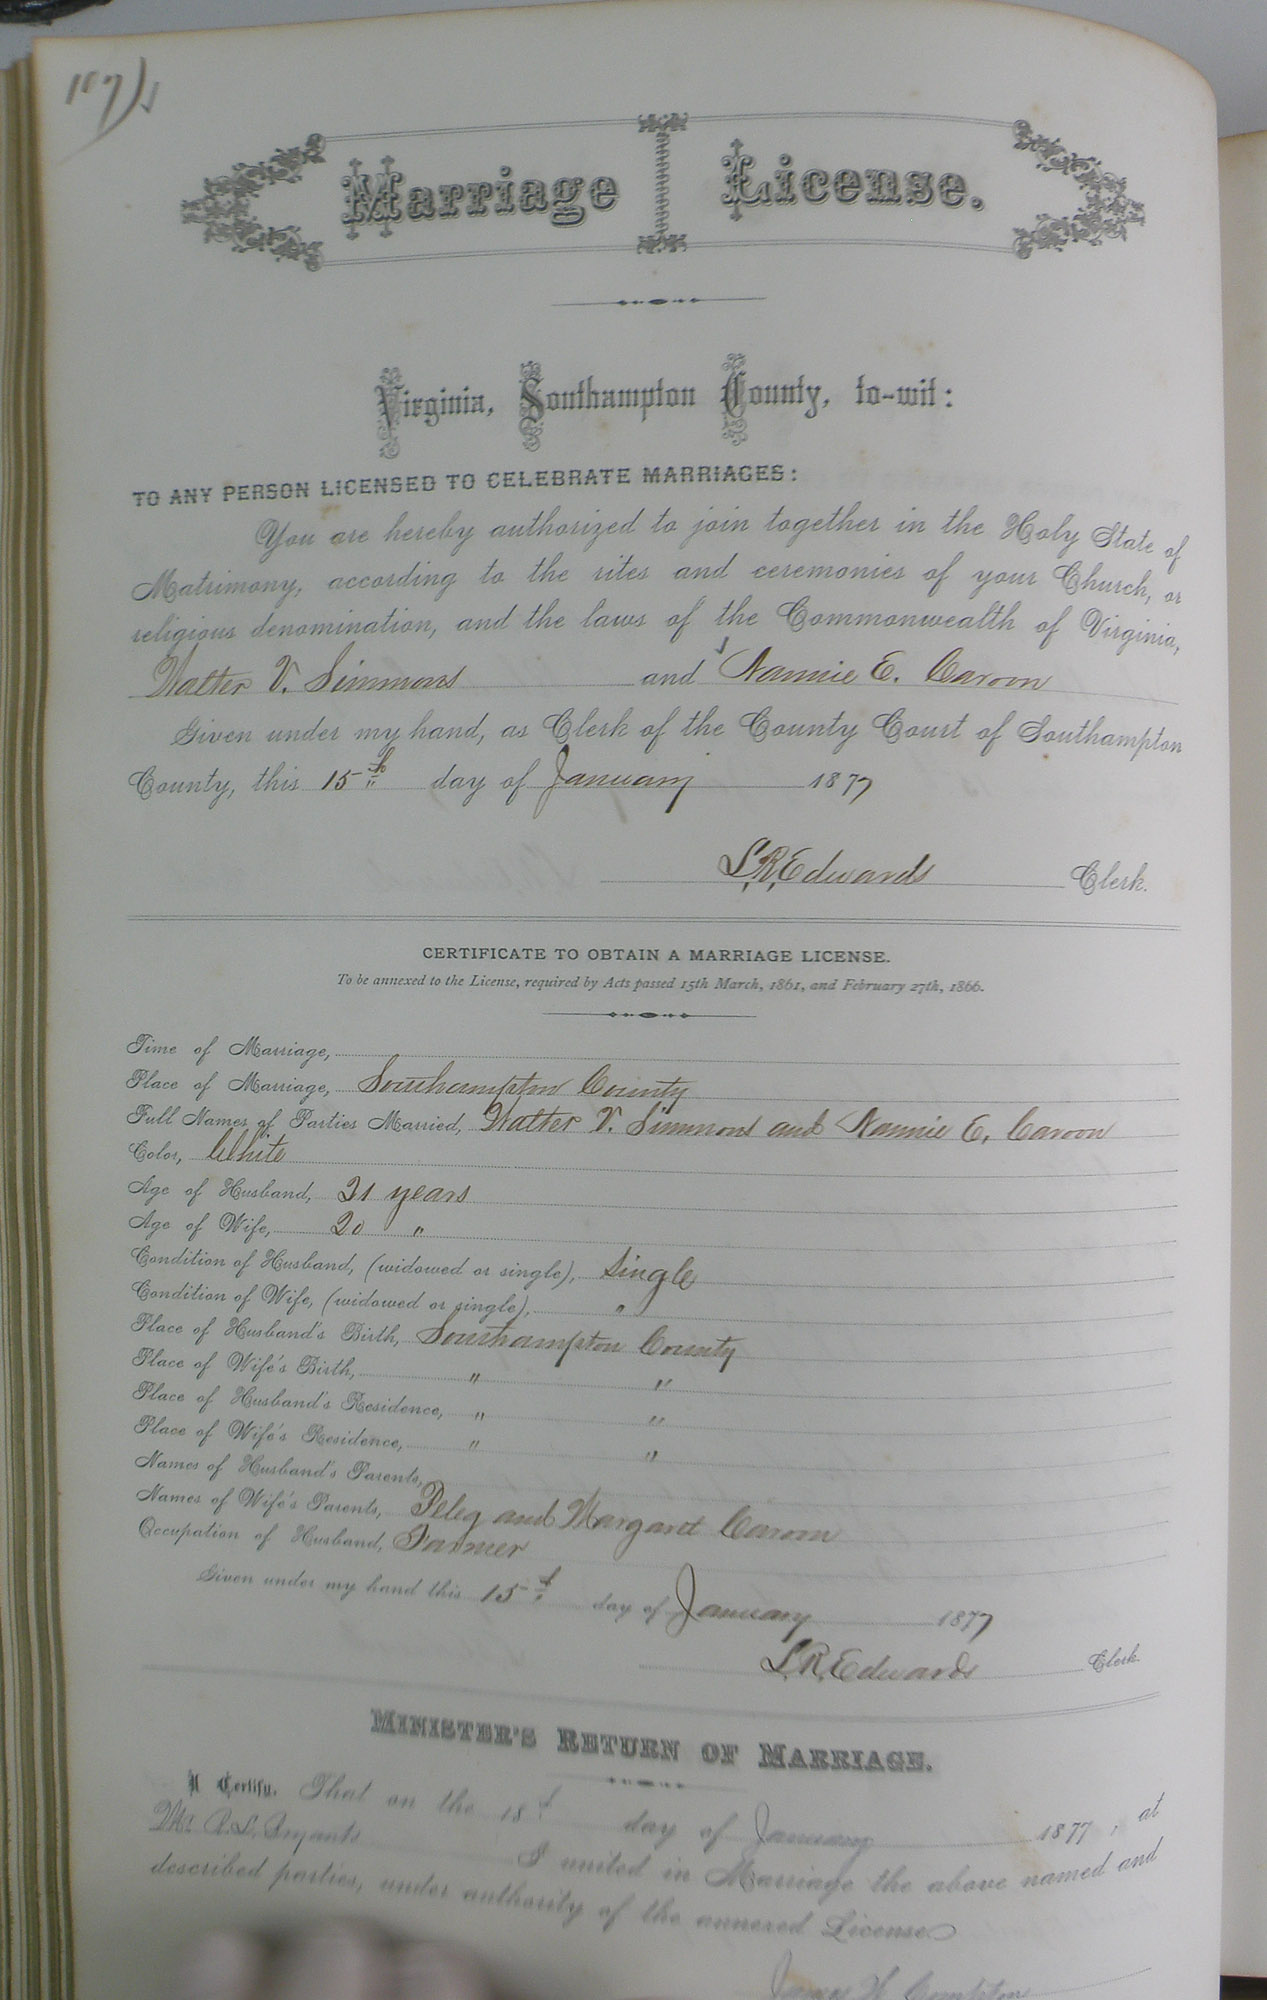 Marriage License.
Virginia, Southampton County, to-wit:
TO ANY PERSON LICENSED TO CELEBRATE MARRIAGES:
You are hereby authorized to join together in the Holy State of
Matrimony, according to the rites and ceremonies of your Church, or
religious denomination, and the laws of the Commonwealth of Virginia,
Walter V. Simmons and Nannie E. Caroon
Given under my hand, as Clerk of the County Court of Southampton
County, this 15th day of January 1877
L.R. Edwards Clerk.
CERTIFICATE TO OBTAIN A MARRIAGE LICENSE.
To be annexed to the License, required by Acts passed 15th March, 1861, and February 27th, 1866.
Time of Marriage,
Place of Marriage, Southampton County
Full Names of Parties Married, Walter V. Simmons and Nannie E. Caroon
Color, White
Age of Husband, 21 years
Age of Wife, 20 "
Condition of Husband, (widowed or single), Single
Condition of Wife, (widowed or single), "
Place of Husband's Birth, Southampton County
Place of Wife's Birth, " "
Place of Husband's Residence, " "
Place of Wife's Residence, " "
Names of Husband's Parents,
Names of Wife's Parents, Peleg and Margaret Caroon
Occupation of Husband, Farmer
Given under my hand this 15th day of January 1877
L.R. Edwards Clerk.
MINISTER'S RETURN OF MARRIAGE.
I Certify, That on the 18th day of January 1877, at
Mr. Bryants I united in Marriage the above named and
described parties, under authority of the annexed License
James W. Compton